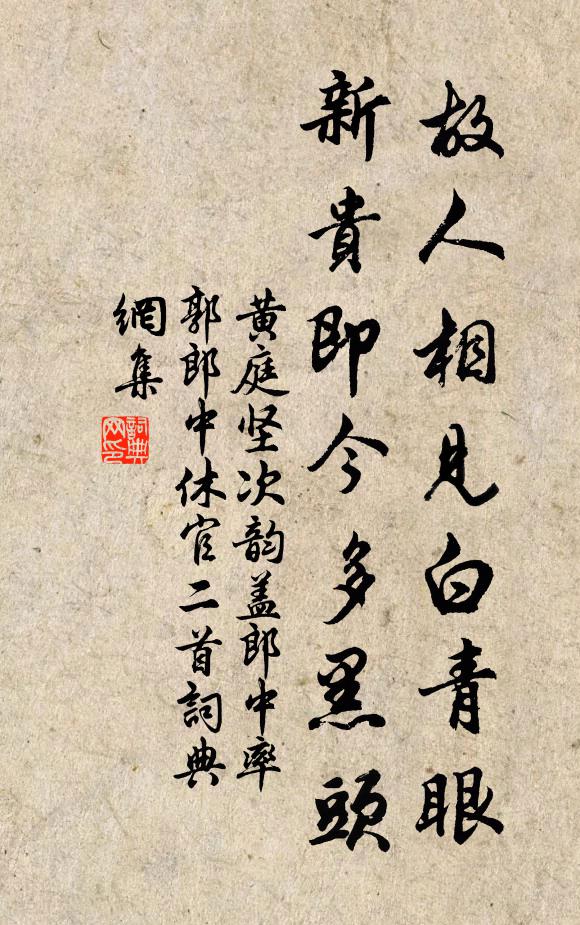 故人相見白青眼
新貴即今多黑頭
黄庭坚次韵盖郎中率
郭郎中休官二首詞典
網集
詞典
网印